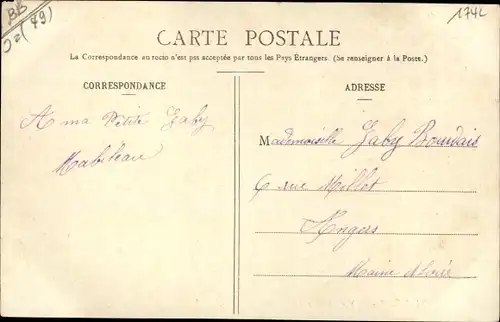 BB
(49)
1742
CARTE POSTALE
La Correspondance au recto n'est pas acceptée par tous les Pays Étrangers. (Se renseigner à la Poste.)
CORRESPONDANCE
ADRESSE
A ma Petite Gaby
Mabileau
Mademoiselle Gaby Bourdais
6 rue Millet
Angers
Maine et Loire